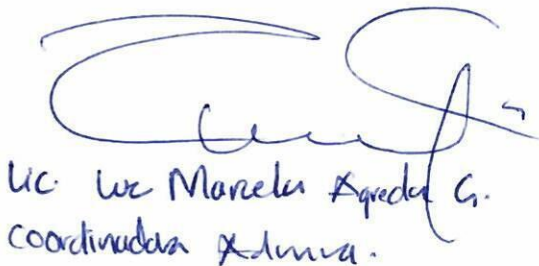 Lic. Luz Marcela Agreda G.
Coordinadora Admiva.